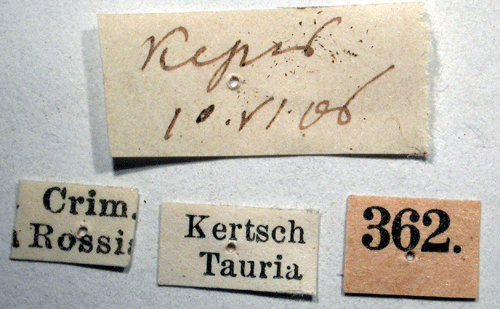 Керчь
10.VI.06
Crim.
Rossia
Kertsch
Tauria
362.